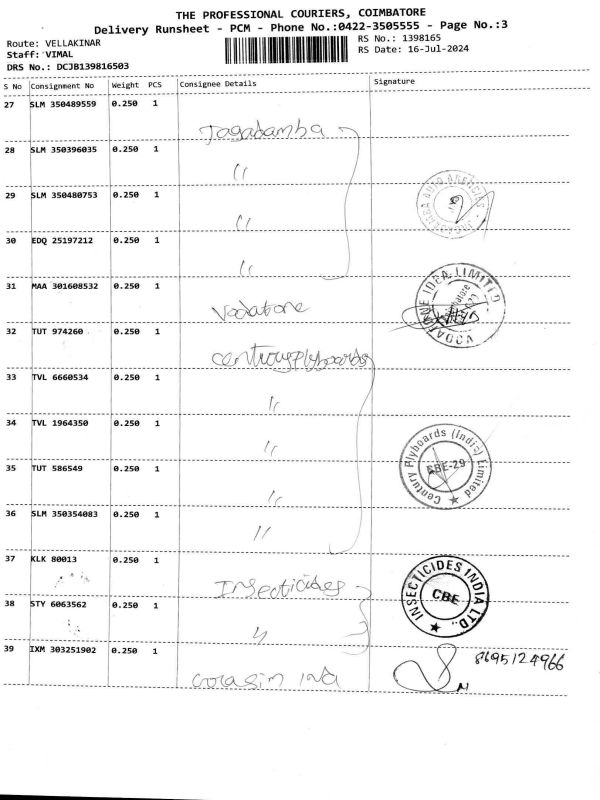 THE PROFESSIONAL COURIERS, COIMBATORE
Delivery Runsheet - PCM - Phone No.:0422-3505555 - Page No.:3
Route: VELLAKINAR
Staff: VIMAL
DRS No.: DCJB139816503
RS No.: 1398165
RS Date: 16-Jul-2024
S No Consignment No Weight PCS Consignee Details Signature
27 SLM 350489559 0.250 1
Jagadamba
28 SLM 350396035 0.250 1
〃
29 SLM 350480753 0.250 1
〃
JAGADAMBA AUTO AGENCIES
30 EDQ 25197212 0.250 1
〃
31 MAA 301608532 0.250 1
Vodafone
VODAFONE IDEA LIMITED
32 TUT 974260 0.250 1
Centruyplyboards
33 TVL 6660534 0.250 1
〃
34 TVL 1964350 0.250 1
〃
Century Plyboards (India) Limited
CBE-29
35 TUT 586549 0.250 1
〃
36 SLM 350354083 0.250 1
〃
37 KLK 80013 0.250 1
Insecticides
INSECTICIDES INDIA LTD.,
CBE
38 STY 6063562 0.250 1
〃
39 IXM 303251902 0.250 1
8695124966